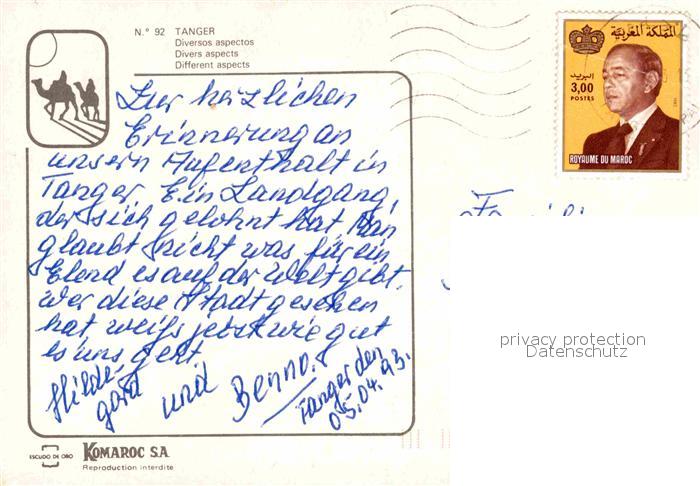 N.° 92 TANGER
Diversos aspectos
Divers aspects
Different aspects
Zur herzlichen
Erinnerung an
unsern Aufenthalt in
Tanger Ein Landgang,
der sich gelohnt hat Man
glaubt nicht was für ein
Elend es auf der Welt gibt.
Wer diese Stadt gesehen
hat weiß jetzt wie gut
es uns geht
Hilde-
gard und Benno.
Tanger den
05.04.93.
المملكة المغربية
البريد
3,00
POSTES
ROYAUME DU MAROC
privacy protection
Datenschutz
ESCUDO DE ORO
KOMAROC S.A.
Reproduction interdite